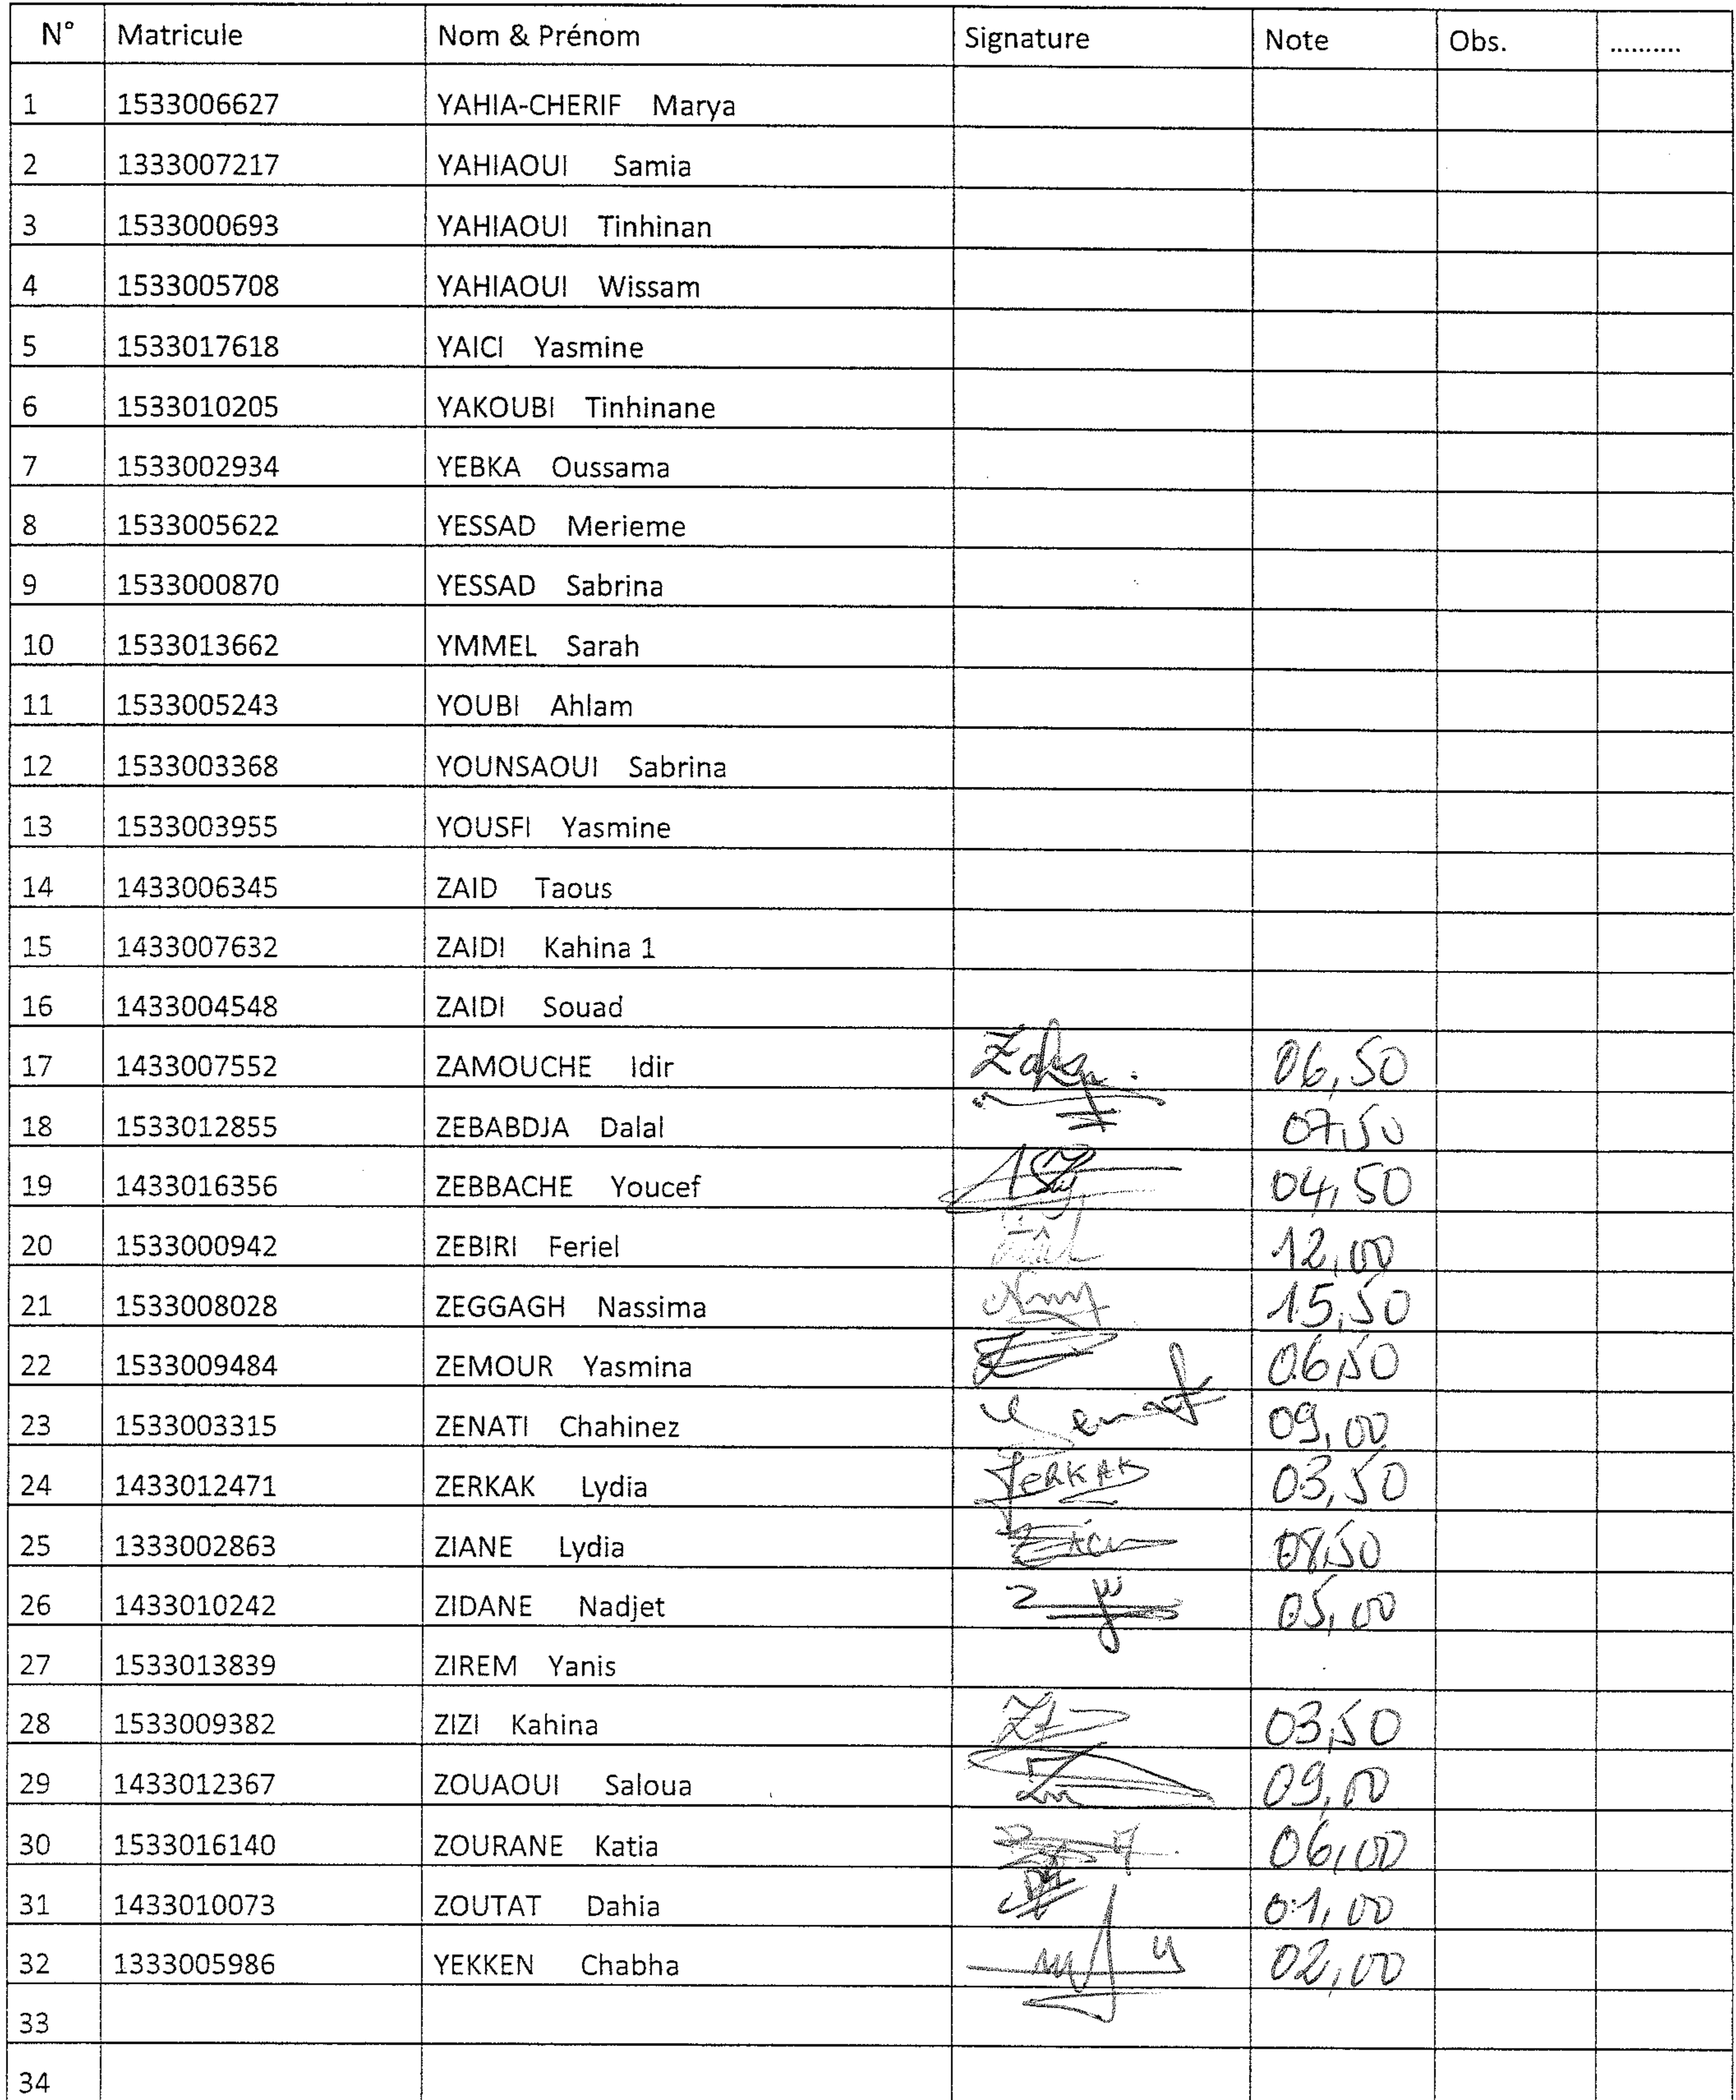 N° Matricule Nom & Prénom Signature Note Obs. ..........
1 1533006627 YAHIA-CHERIF Marya
2 1333007217 YAHIAOUI Samia
3 1533000693 YAHIAOUI Tinhinan
4 1533005708 YAHIAOUI Wissam
5 1533017618 YAICI Yasmine
6 1533010205 YAKOUBI Tinhinane
7 1533002934 YEBKA Oussama
8 1533005622 YESSAD Merieme
9 1533000870 YESSAD Sabrina
10 1533013662 YMMEL Sarah
11 1533005243 YOUBI Ahlam
12 1533003368 YOUNSAOUI Sabrina
13 1533003955 YOUSFI Yasmine
14 1433006345 ZAID Taous
15 1433007632 ZAIDI Kahina 1
16 1433004548 ZAIDI Souad
17 1433007552 ZAMOUCHE Idir 06,50
18 1533012855 ZEBABDJA Dalal 07,50
19 1433016356 ZEBBACHE Youcef 04,50
20 1533000942 ZEBIRI Feriel 12,00
21 1533008028 ZEGGAGH Nassima 15,50
22 1533009484 ZEMOUR Yasmina 06,50
23 1533003315 ZENATI Chahinez 09,00
24 1433012471 ZERKAK Lydia ZERKAK 03,50
25 1333002863 ZIANE Lydia 08,50
26 1433010242 ZIDANE Nadjet 05,00
27 1533013839 ZIREM Yanis
28 1533009382 ZIZI Kahina 03,50
29 1433012367 ZOUAOUI Saloua 09,00
30 1533016140 ZOURANE Katia 06,00
31 1433010073 ZOUTAT Dahia 01,00
32 1333005986 YEKKEN Chabha 02,00
33
34